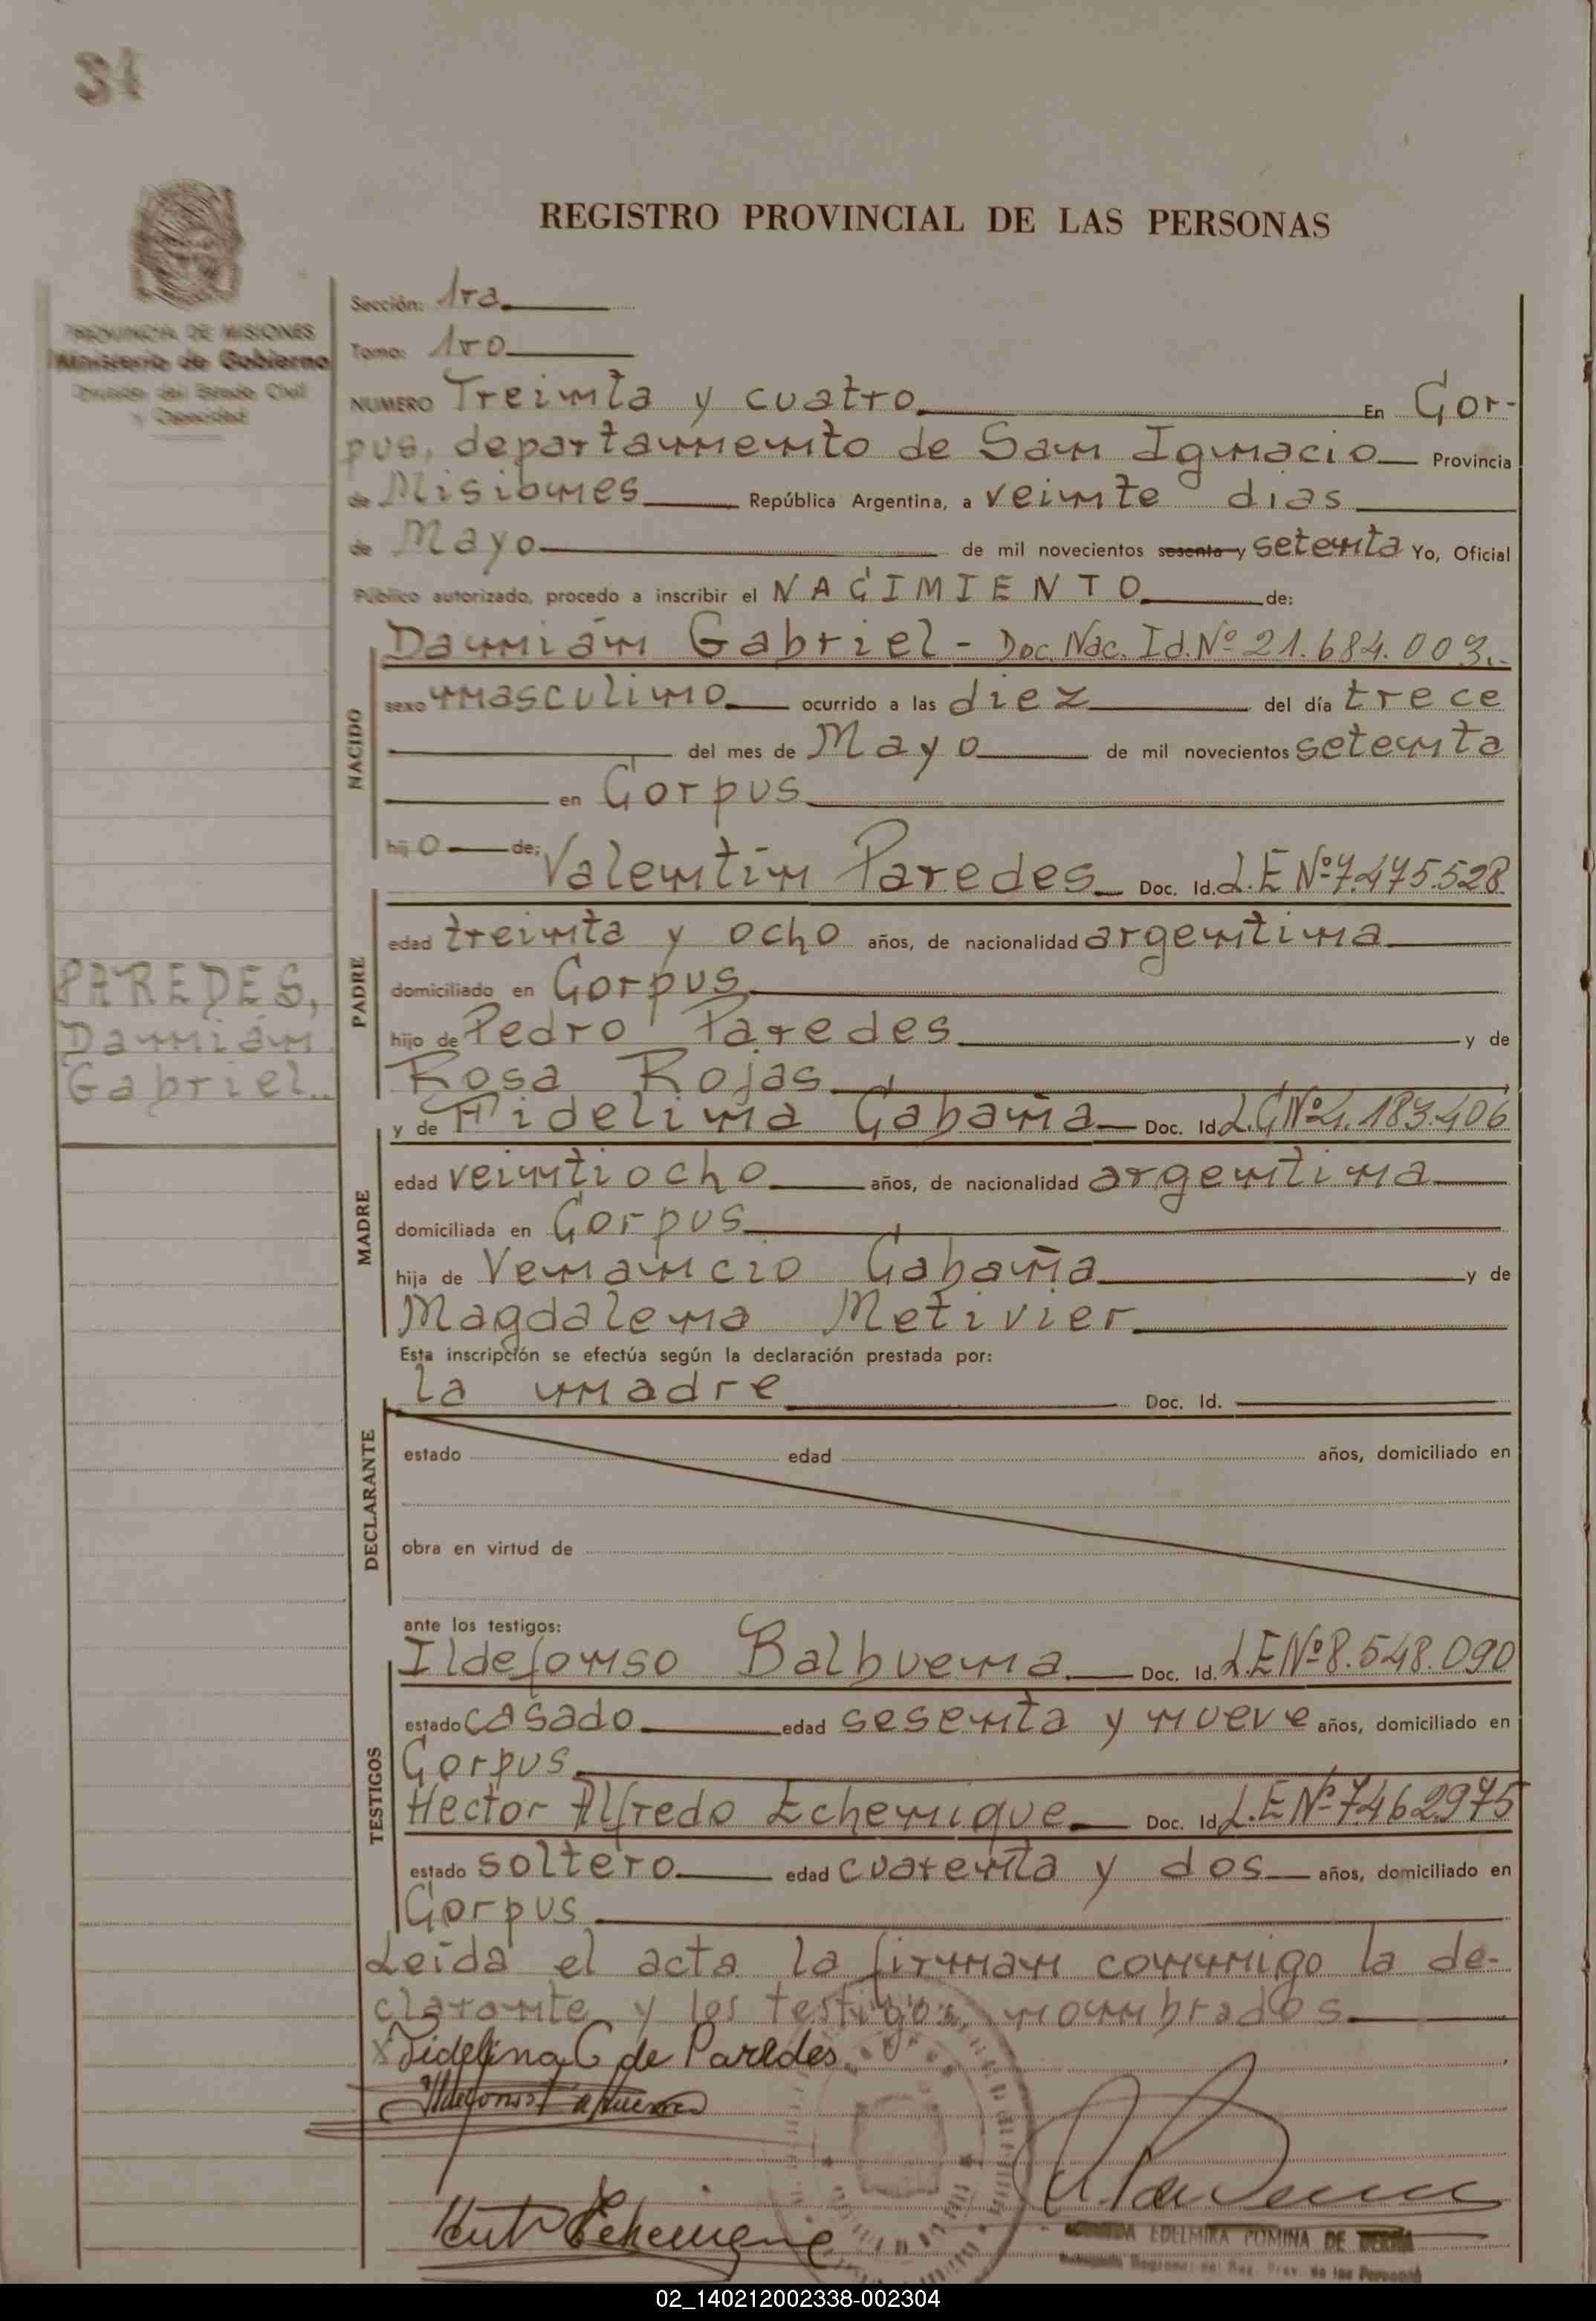 34
REGISTRO PROVINCIAL DE LAS PERSONAS
PROVINCIA DE MISIONES
Ministerio de Gobierno
División del Estado Civil
y Capacidad
Sección: 1ra
Tomo: 1ro
NUMERO Treinta y cuatro En Cor-
pus, departamento de San Ignacio Provincia
de Misiones República Argentina, a veinte dias
de Mayo de mil novecientos sesenta y setenta Yo, Oficial
Público autorizado, procedo a inscribir el NACIMIENTO de:
Damián Gabriel - Doc. Nac. Id. Nº 21.684.003.-
NACIDO
sexo masculino ocurrido a las diez del día trece
del mes de Mayo de mil novecientos setenta
en Corpus
hijo de: Valentín Paredes Doc. Id. L.E Nº 7.475.528
PADRE
edad treinta y ocho años, de nacionalidad argentina
domiciliado en Corpus
hijo de Pedro Paredes y de
Rosa Rojas
PAREDES,
Damián
Gabriel.
y de Fidelina Cabaña Doc. Id. L.C Nº 4.183.406
MADRE
edad veintiocho años, de nacionalidad argentina
domiciliada en Corpus
hija de Venancio Cabaña y de
Magdalena Metivier
Esta inscripción se efectúa según la declaración prestada por:
la madre Doc. Id.
DECLARANTE
estado edad años, domiciliado en
obra en virtud de
ante los testigos:
Ildefonso Balbuena Doc. Id. L.E Nº 8.548.090
TESTIGOS
estado casado edad sesenta y nueve años, domiciliado en
Corpus
Hector Alfredo Echenique Doc. Id. L.E Nº 7.462975
estado soltero edad cuarenta y dos años, domiciliado en
Corpus
Leída el acta la firman conmigo la de-
clarante y los testigos nombrados
X Fidelina C de Paredes
EDELMIRA POMINA DE
02_140212002338-002304